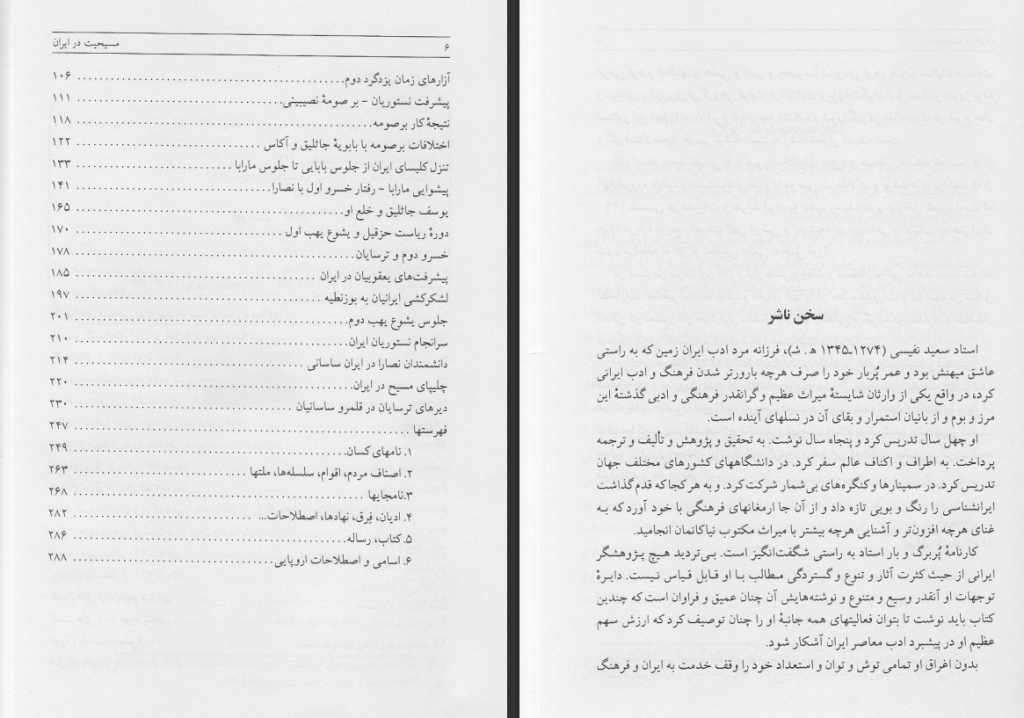 ۶ مسیحیت در ایران
آزارهای زمان یزدگرد دوم ۱۰۶
پیشرفت نستوریان - بر صومهٔ نصیبینی ۱۱۱
نتیجهٔ کار برصومه ۱۱۸
اختلافات برصومه با بابویهٔ جاثلیق و آکاس ۱۲۲
تنزل کلیسای ایران از جلوس بابایی تا جلوس مارابا ۱۳۳
پیشوایی مارابا - رفتار خسرو اول با نصارا ۱۴۱
یوسف جاثلیق و خلع او ۱۶۵
دورهٔ ریاست حزقیل و یشوع یهب اول ۱۷۰
خسرو دوم و ترسایان ۱۷۸
پیشرفت‌های یعقوبیان در ایران ۱۸۵
لشکرکشی ایرانیان به بوزنطیه ۱۹۷
جلوس یشوع یهب دوم ۲۰۱
سرانجام نستوریان ایران ۲۱۰
دانشمندان نصارا در ایران ساسانی ۲۱۴
چلیپای مسیح در ایران ۲۲۰
دیرهای ترسایان در قلمرو ساسانیان ۲۳۰
فهرستها ۲۴۷
۱. نامهای کسان ۲۴۹
۲. اصناف مردم، اقوام، سلسله‌ها، ملتها ۲۶۳
۳.نامجایها ۲۶۸
۴. ادیان، فِرَق، نهادها، اصطلاحات... ۲۸۲
۵. کتاب، رساله ۲۸۶
۶. اسامی و اصطلاحات اروپایی ۲۸۸
سخن ناشر
استاد سعید نفیسی (۱۲۷۴ـ۱۳۴۵ ه‍. ش)، فرزانه مرد ادب ایران زمین که به راستی
عاشق میهنش بود و عمر پُربار خود را صرف هرچه بارورتر شدن فرهنگ و ادب ایرانی
کرد، در واقع یکی از وارثان شایستهٔ میراث عظیم و گرانقدر فرهنگی و ادبی گذشتهٔ این
مرز و بوم و از بانیان استمرار و بقای آن در نسلهای آینده است.
او چهل سال تدریس کرد و پنجاه سال نوشت. به تحقیق و پژوهش و تألیف و ترجمه
پرداخت. به اطراف و اکناف عالم سفر کرد. در دانشگاههای کشورهای مختلف جهان
تدریس کرد. در سمینارها و کنگره‌های بی‌شمار شرکت کرد. و به هر کجا که قدم گذاشت
ایرانشناسی را رنگ و بویی تازه داد و از آن جا ارمغانهای فرهنگی با خود آورد که به
غنای هرچه افزون‌تر و آشنایی هرچه بیشتر با میراث مکتوب نیاکانمان انجامید.
کارنامهٔ پُربرگ و بار استاد به راستی شگفت‌انگیز است. بی‌تردید هیچ پژوهشگر
ایرانی از حیث کثرت آثار و تنوع و گستردگی مطالب با او قابل قیاس نیست. دایرهٔ
توجهات او آنقدر وسیع و متنوع و نوشته‌هایش آن چنان عمیق و فراوان است که چندین
کتاب باید نوشت تا بتوان فعالیتهای همه جانبهٔ او را چنان توصیف کرد که ارزش سهم
عظیم او در پیشبرد ادب معاصر ایران آشکار شود.
بدون اغراق او تمامی توش و توان و استعداد خود را وقف خدمت به ایران و فرهنگ